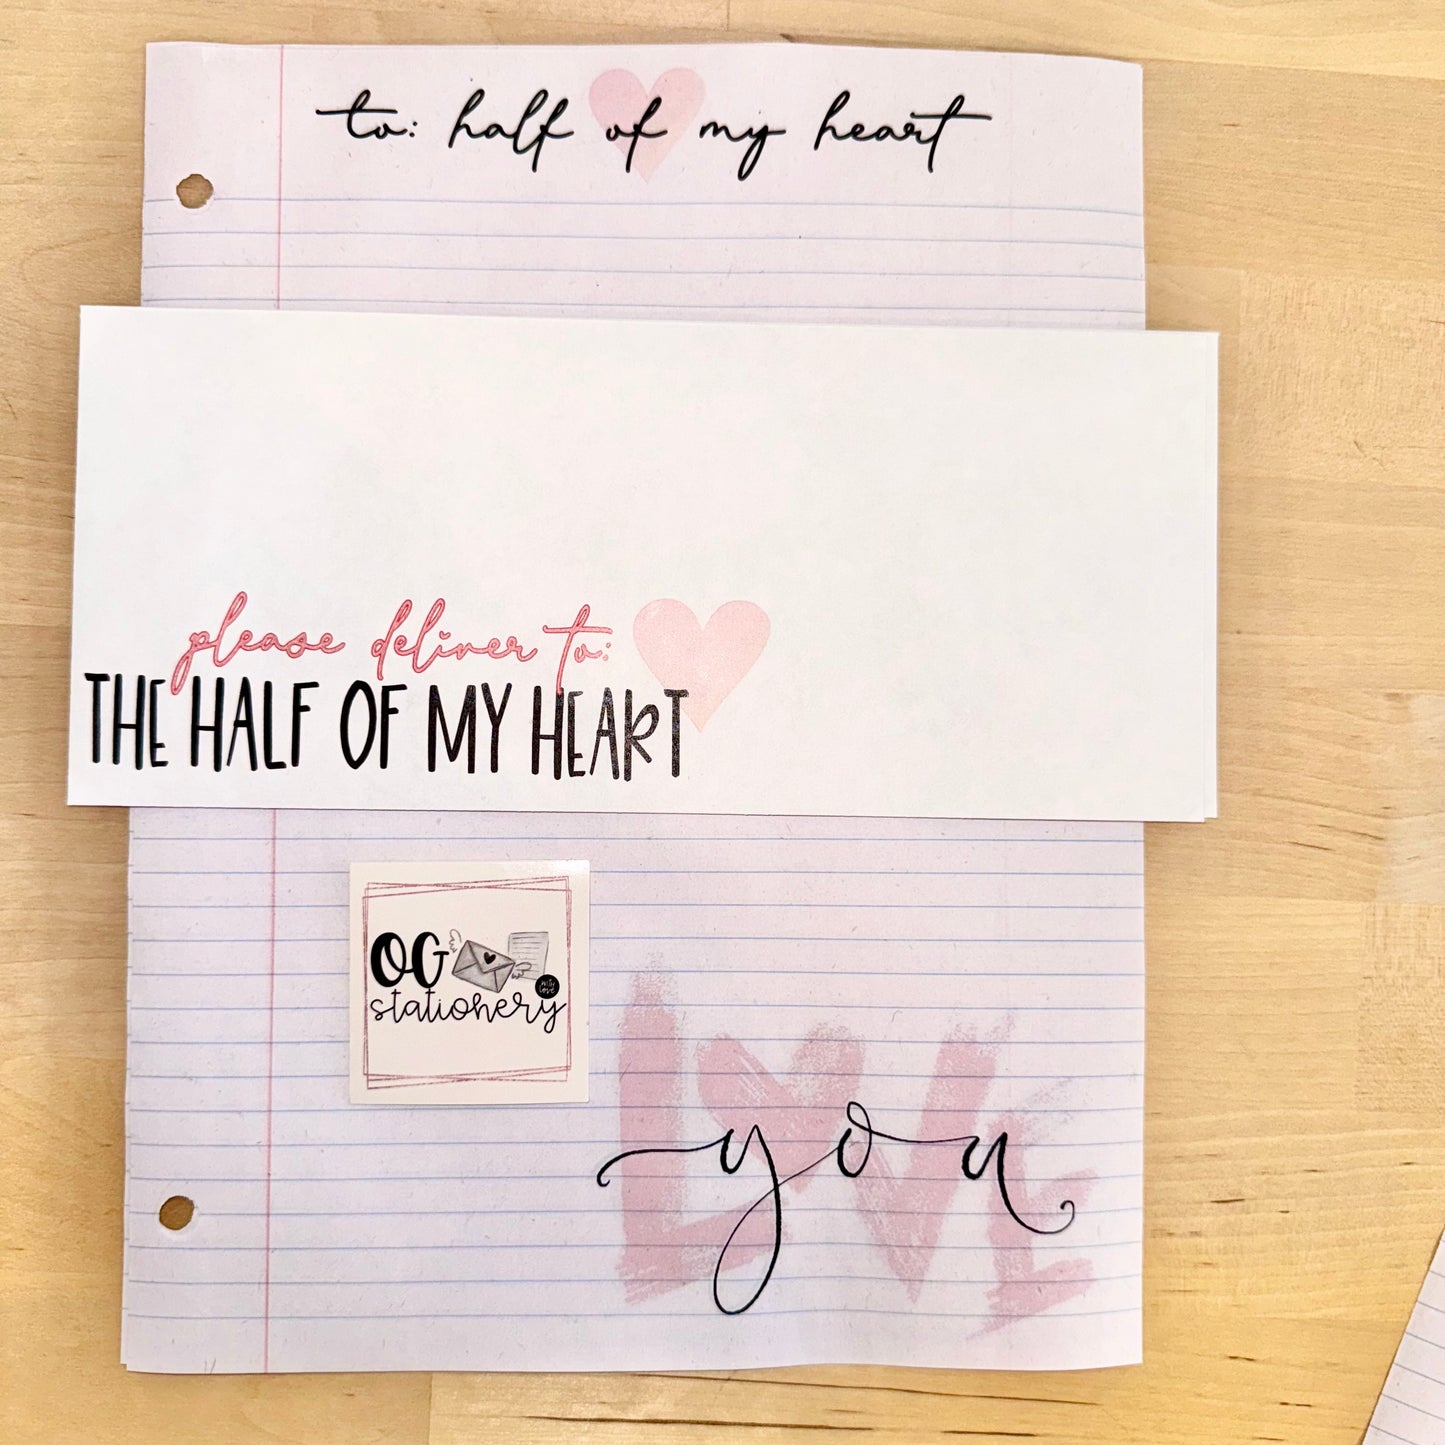 to: half of my heart
please deliver to:
THE HALF OF MY HEART
OG
stationery
LOVE
you